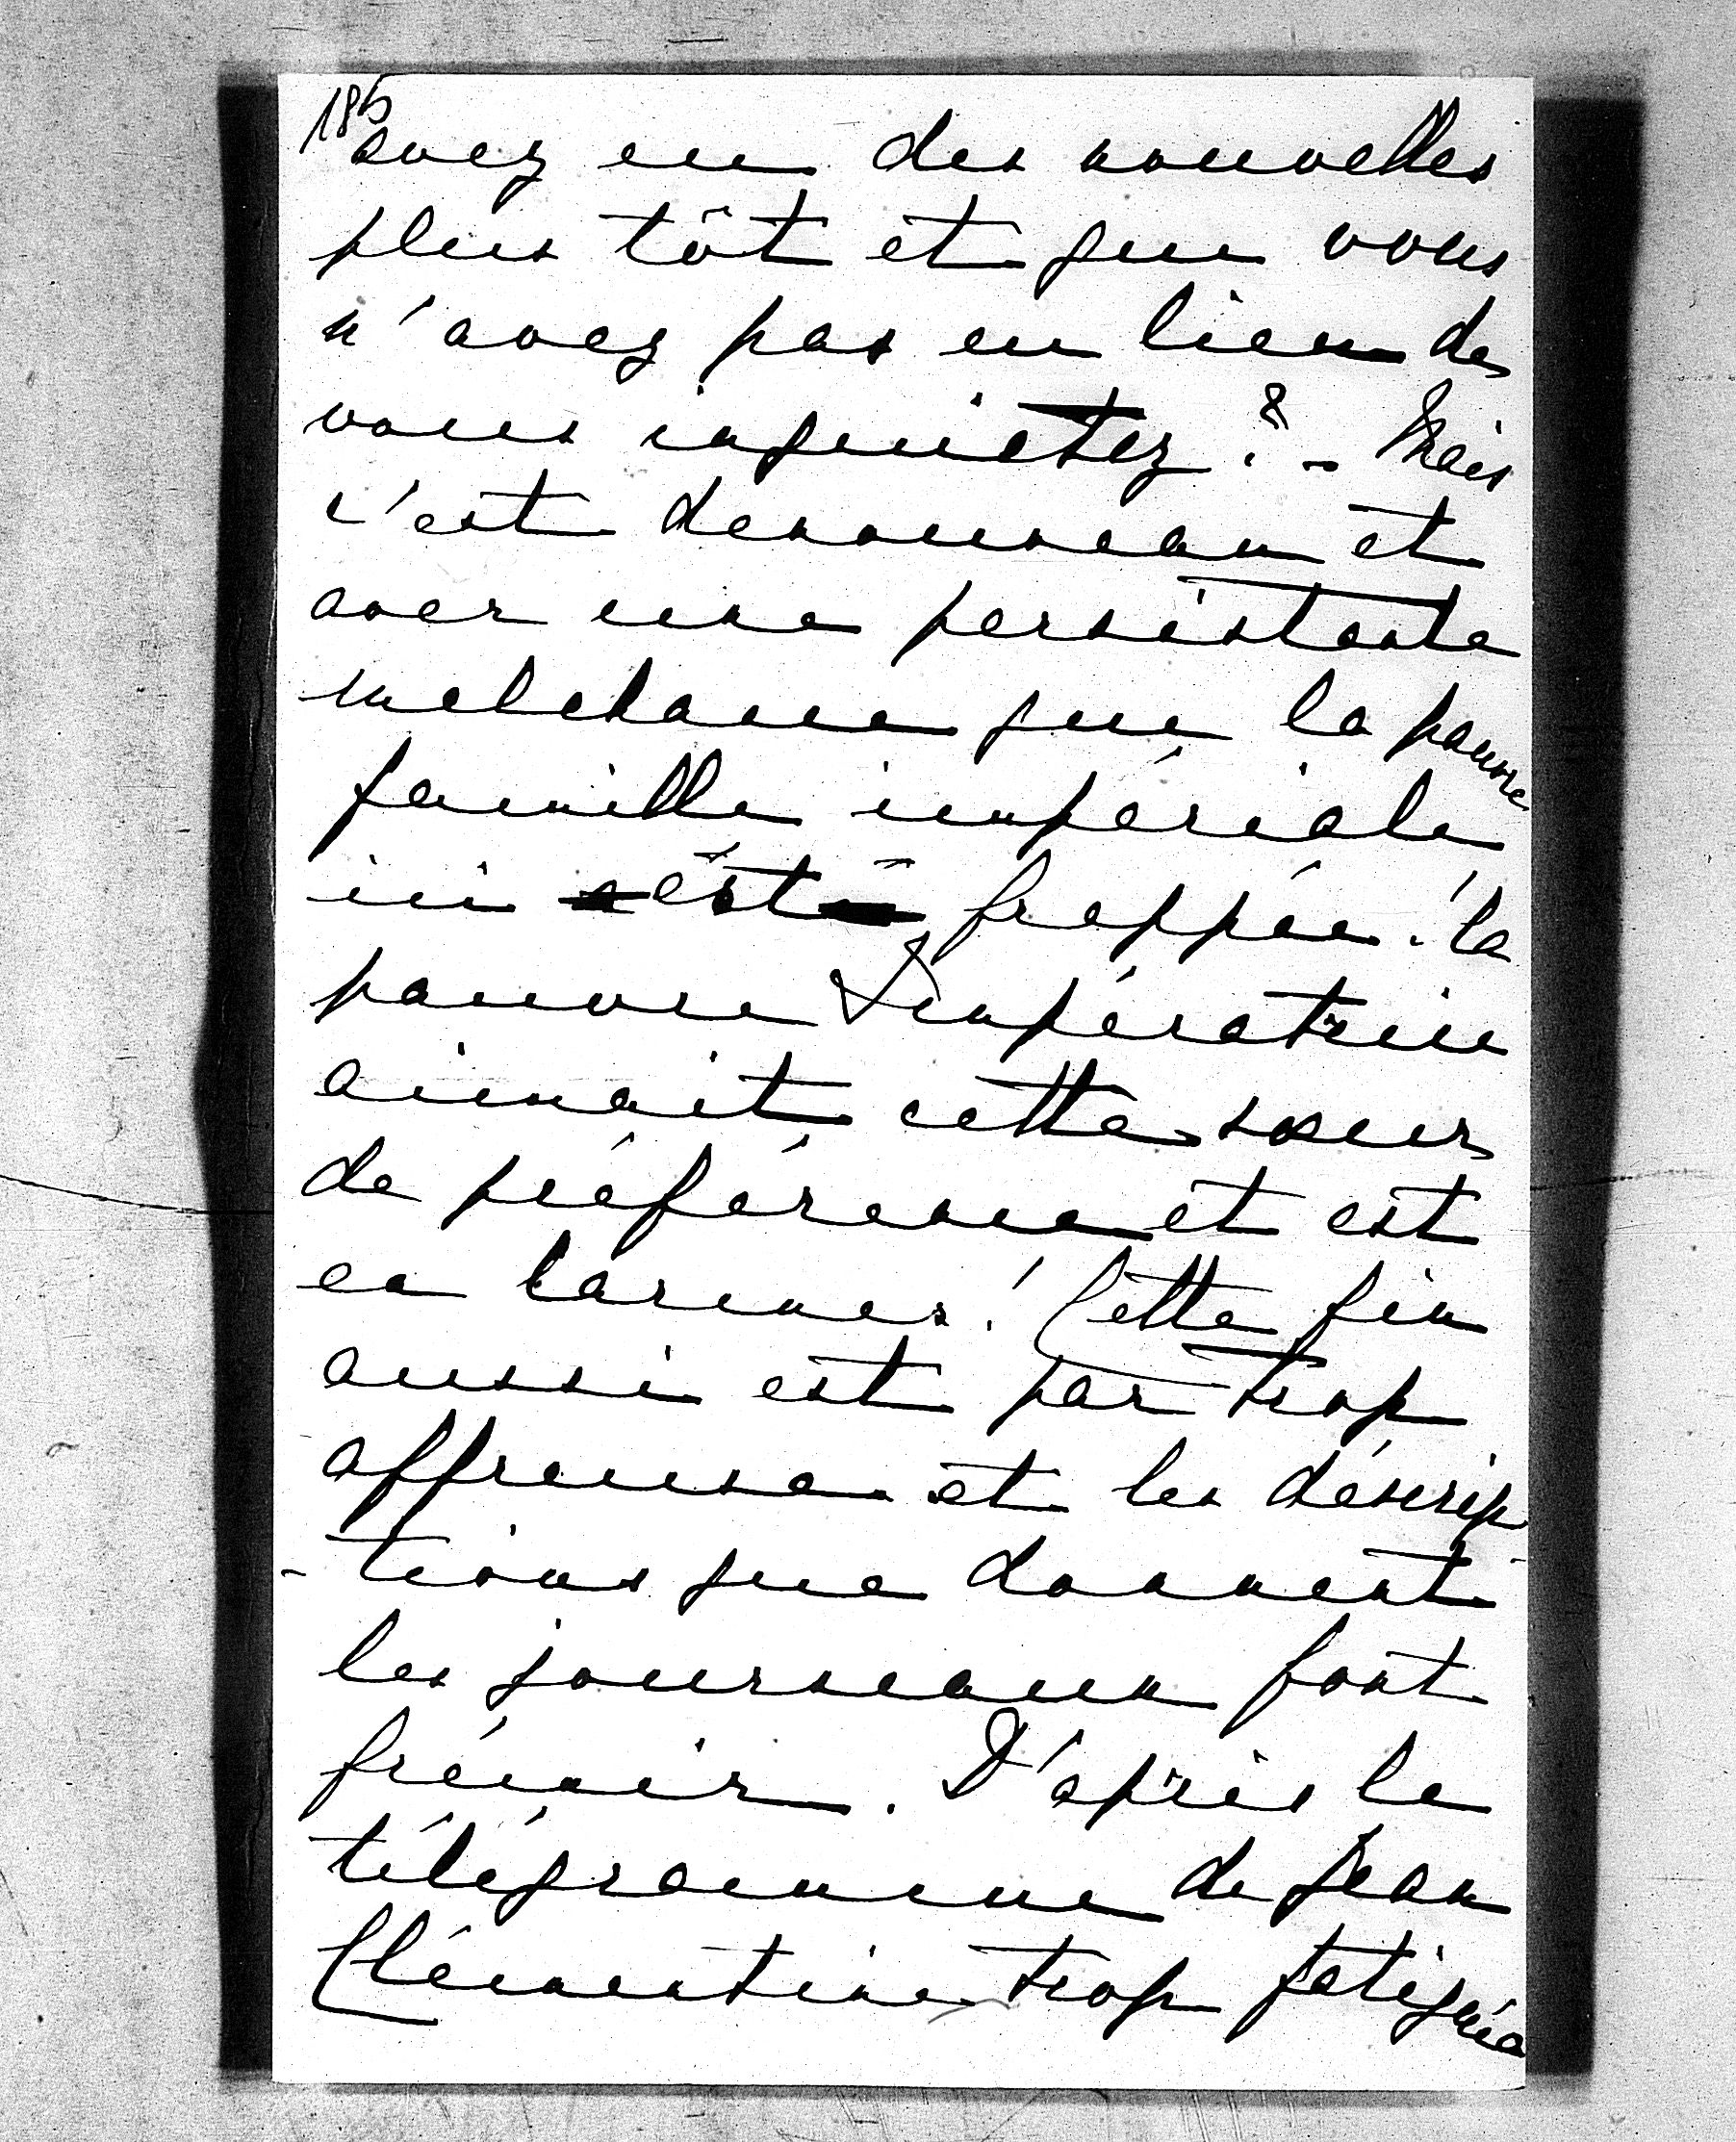 185
avez eu des nouvelles
plus tôt et que vous
n'avez pas eu lieu de
vous inquietez ? - Mais
c'est denouveau et
avec une persistante
melchance que la pauvre
famille impériale
ici est frappée. la
pauvre Impératrice
aimait cette sœur
de préférence et est
en larmes ! Cette fin
aussi est par trop
affreuse et les déscrip-
-tions que donnent
les journaux font
frémir. D'après le
télégramme de Jean
Clémentine trop fatiguée